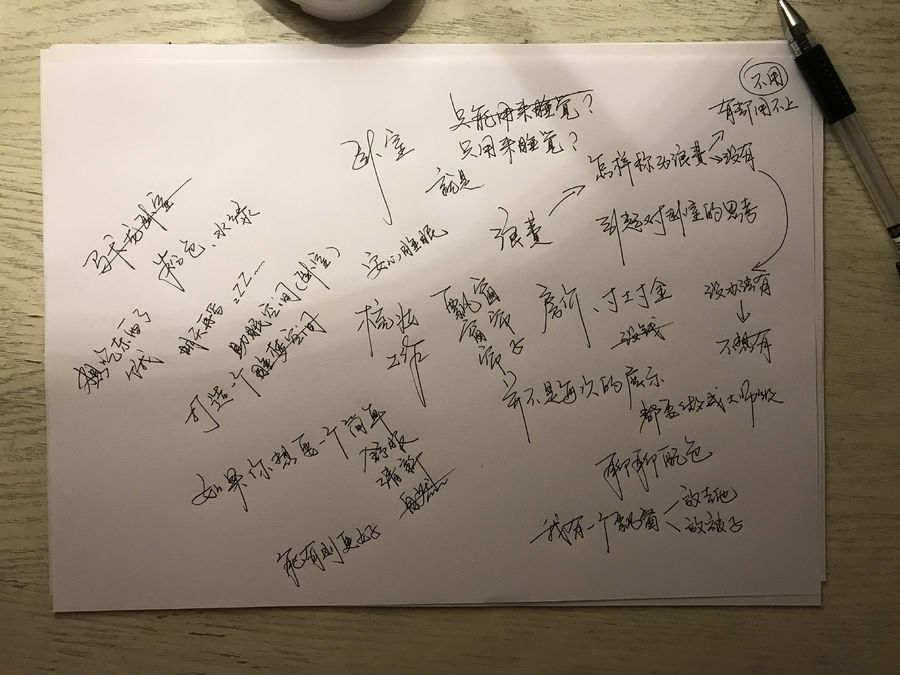 不用
有却用不上
只能用来睡觉?
只用来睡觉?
卧室
就是
怎样称为浪费
没有
浪费
引起对卧室的思考
粉色、水绿
安心睡眠
助眠空间(卧室)
打造一个睡蓝空间
zzz……
想吃东西了
梳妆
工作
飘窗
窗帘
房价、寸土寸金
没钱
没办法有
不想有
并不是每次的展示
都要做成大师级
聊聊配色
如果你想要一个简单
舒服
清新
我有一个飘窗
放吉他
放被子
能有则更好